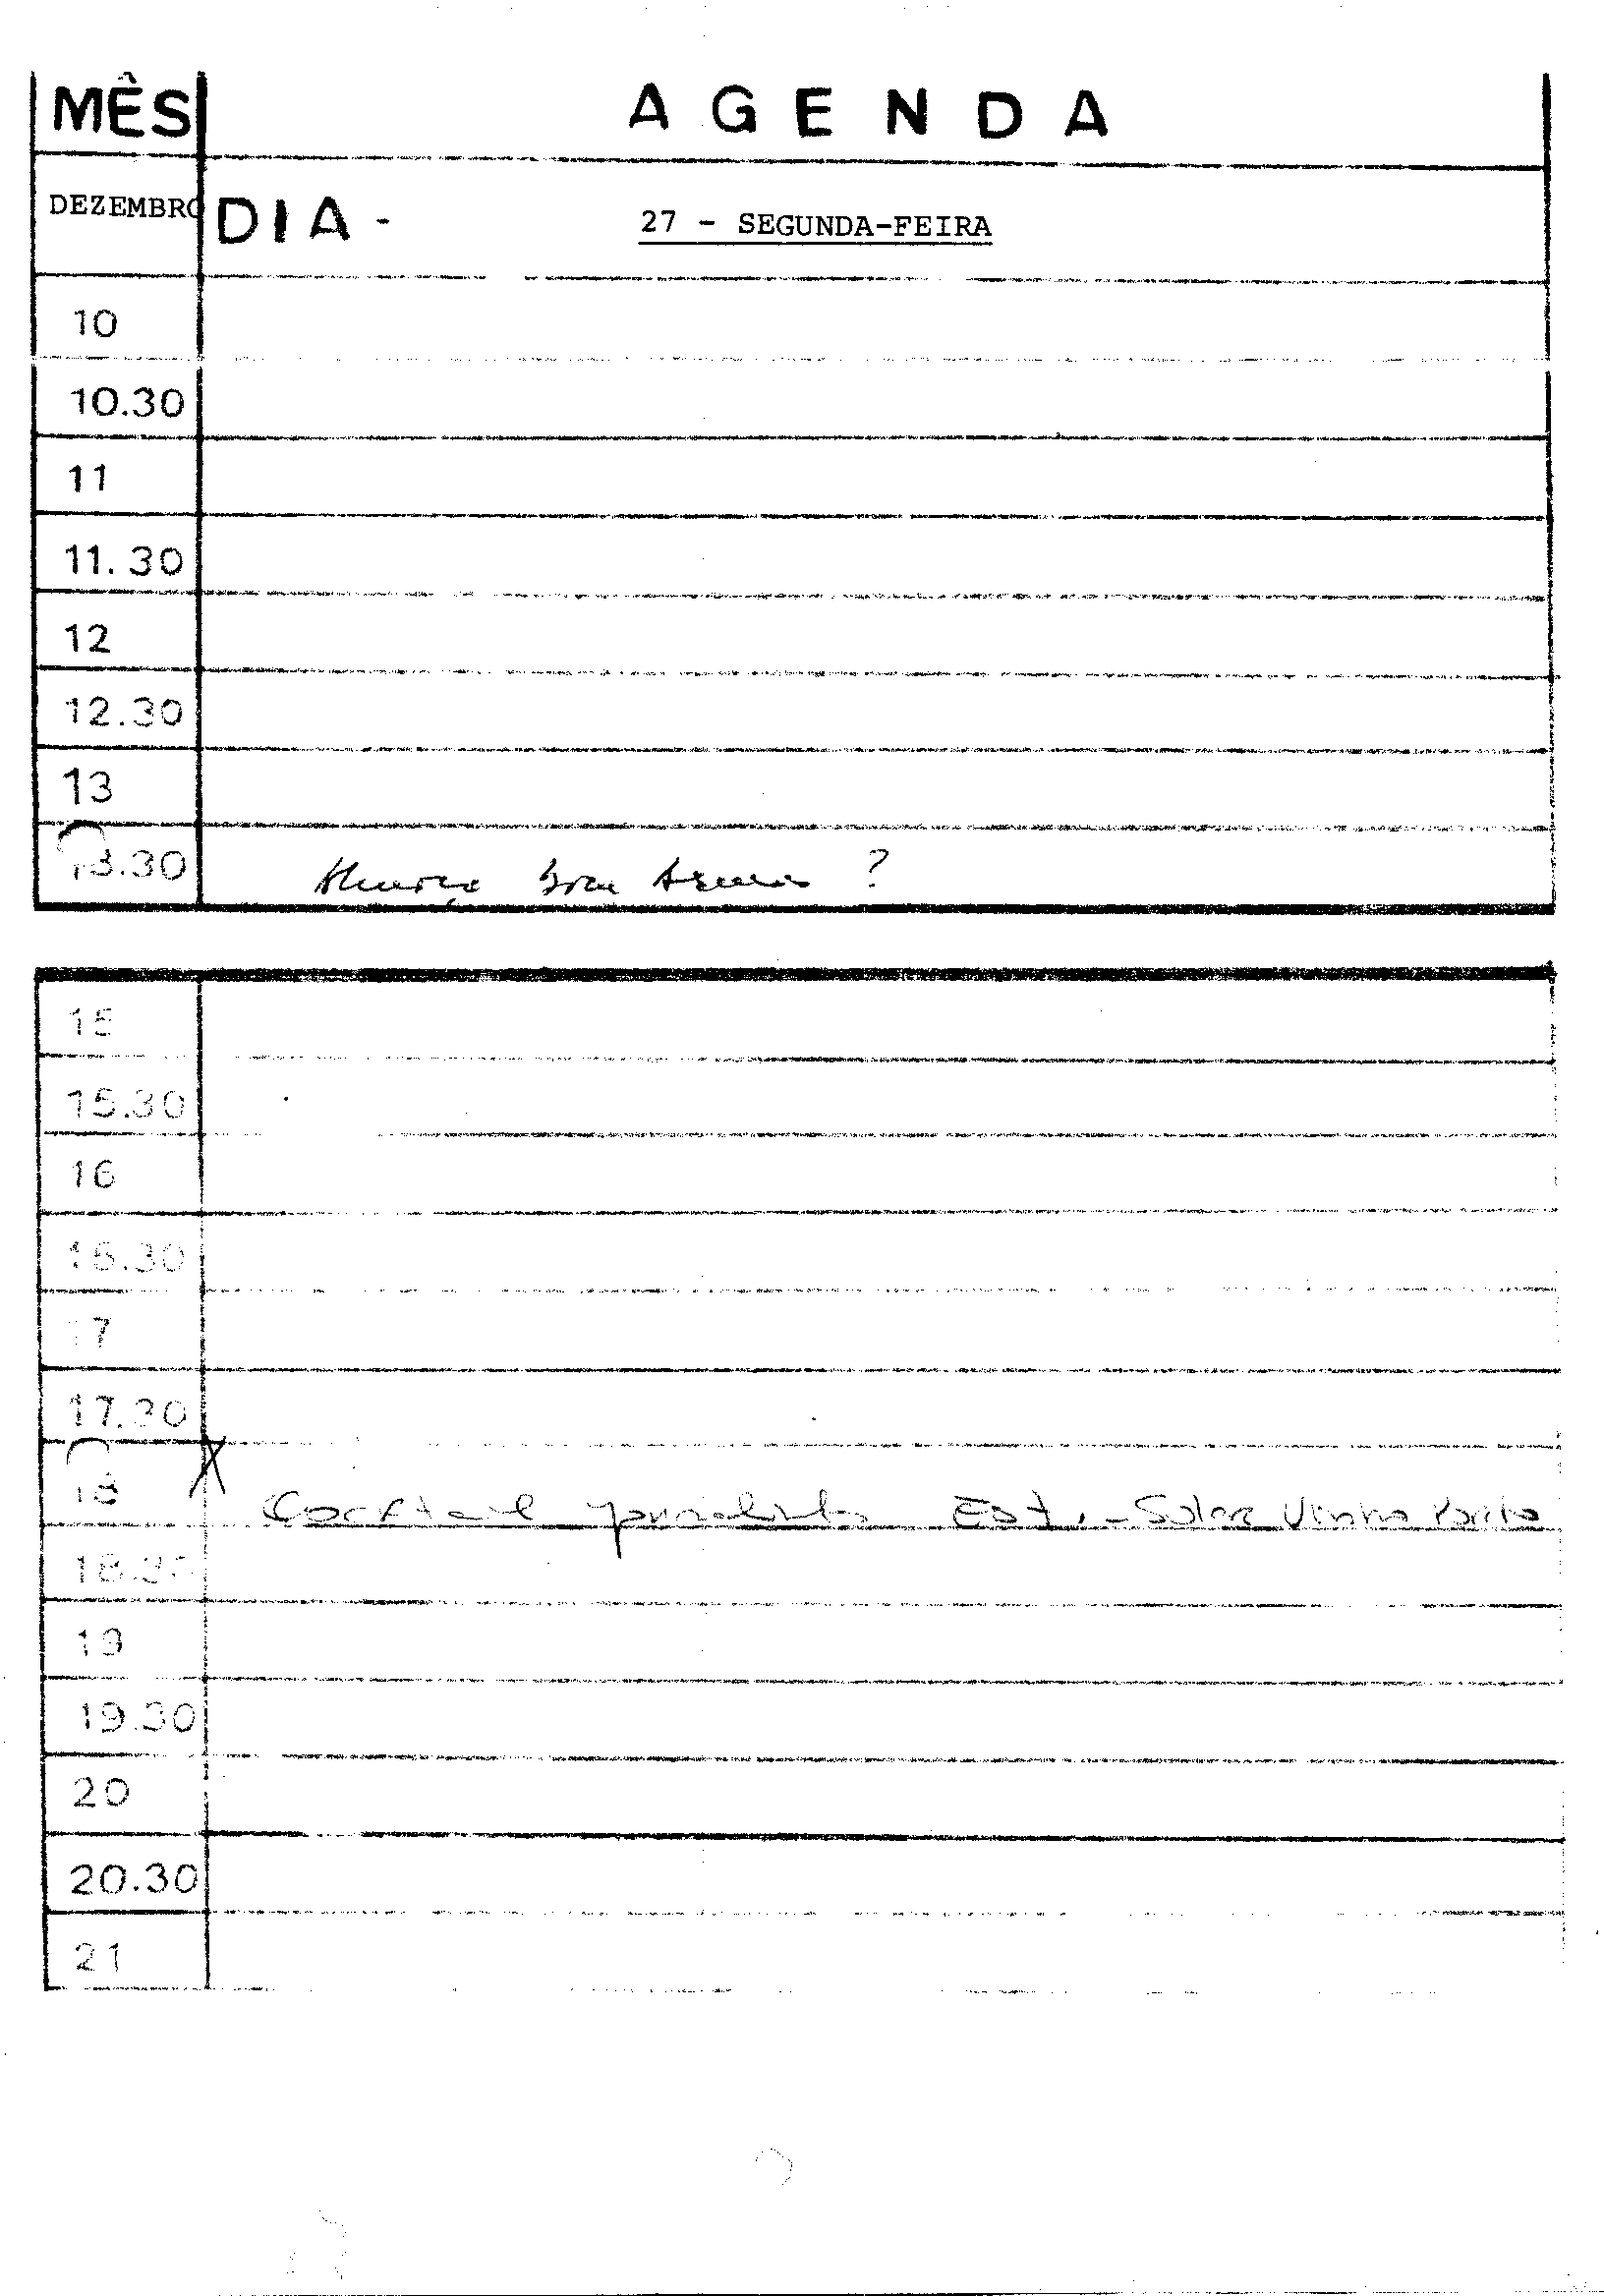 MÊS AGENDA
DEZEMBRO DIA - 27 - SEGUNDA-FEIRA
10
10.30
11
11.30
12
12.30
13
13.30 ?
15
15.30
16
16.30
17
17.30
18 Cocktail jornalistas Est. - Solar Vinho Porto
18.30
19
19.30
20
20.30
21